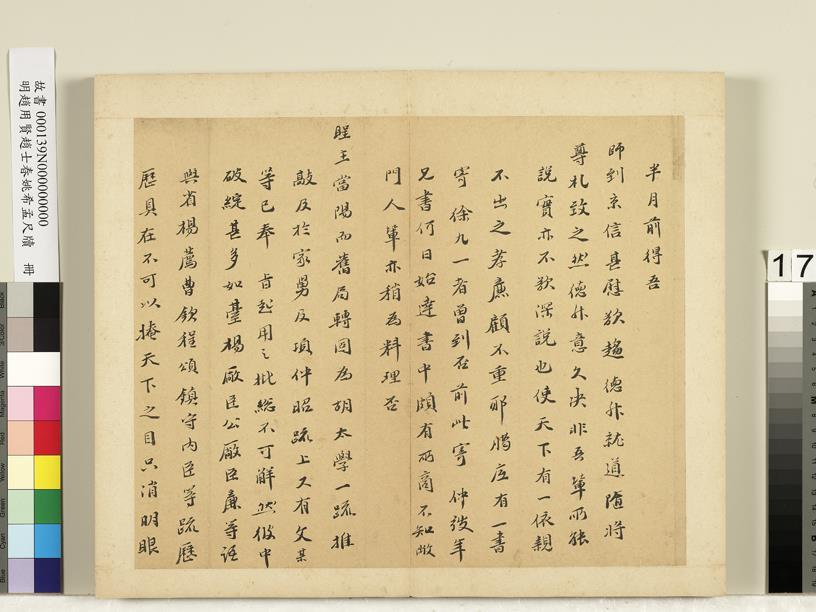 半月前得吾
師到京信甚慰欲趨德州就道隨將
尊札致之然德州意久决非吾輩所能
說實亦不欲深說也使天下有一依親
不出之孝廉顧不重耶膓庄有一書
寄徐九一者曾到否前此寄仲弢年
兄書何日始達書中頗有所商不知敝
門人輩亦稍為料理否
聖王當陽而舊局轉固為胡太學一疏推
敲及於家舅及項仲昭疏上又有文某
等已奉旨起用之批總不可解然彼中
破綻甚多如臺楊廠臣公廠臣廉等語
與省楊薦曹欽程頌鎮守内臣等疏歷
歷具在不可以掩天下之目只消明眼
故書 000139N000000000
明趙用賢趙士春姚希孟尺牘 冊
17